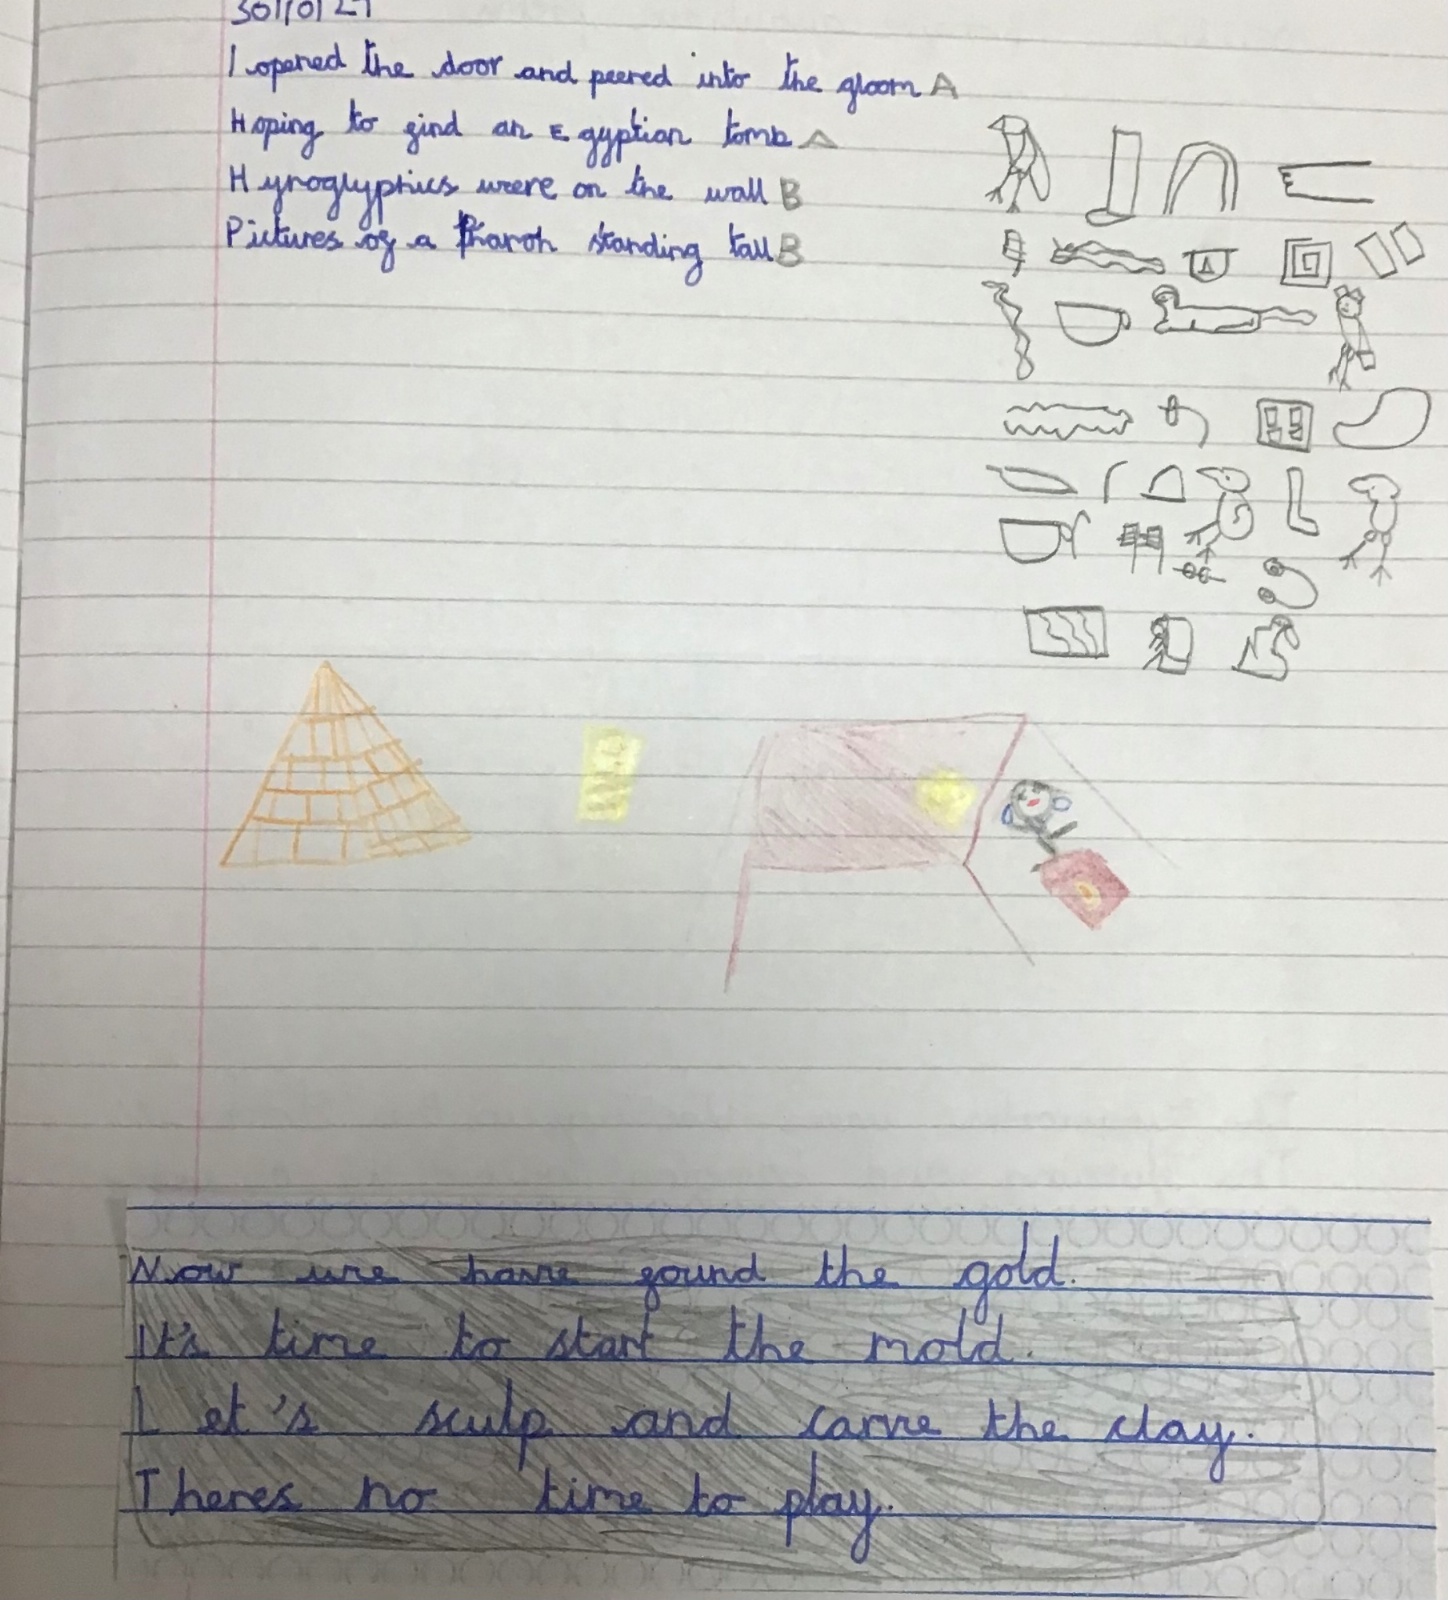 I opened the door and peered into the gloom A
Hoping to find an Egyptian tomb A
Hyroglyphics were on the wall B
Pictures of a Pharoh standing tall B
Now we have found the gold.
It's time to start the mold.
Let's sculp and carve the clay.
Theres no time to play.